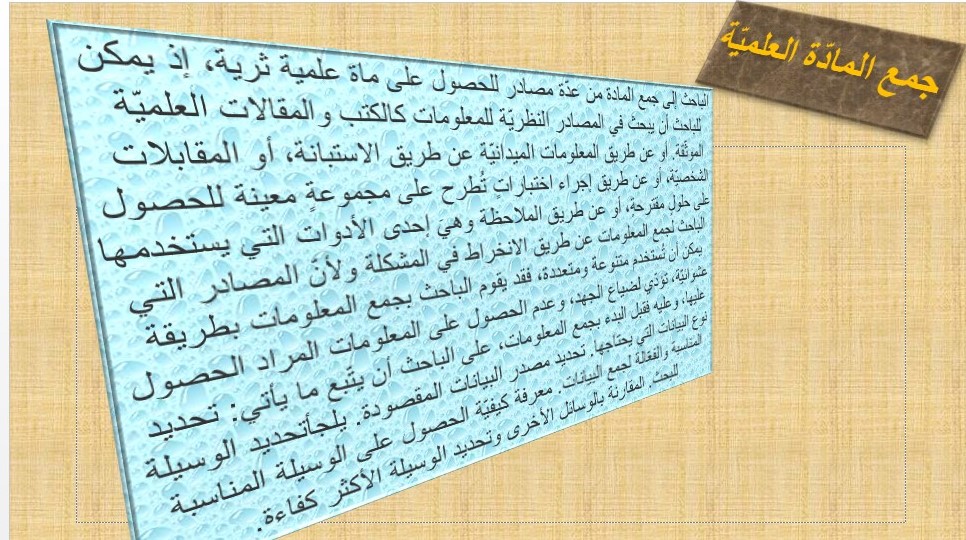 جمع المادّة العلميّة
الباحث إلى جمع المادة من عدّة مصادر للحصول على ماة علمية ثرية، إذ يمكن
للباحث أن يبحث في المصادر النظريّة للمعلومات كالكتب والمقالات العلميّة
الموثّقة. أو عن طريق المعلومات الميدانيّة عن طريق الاستبانة، أو المقابلات
الشخصيّة، أو عن طريق إجراء اختباراتٍ تُطرح على مجموعةٍ معينة للحصول
على حلول مقترحة، أو عن طريق الملاحظة وهيَ إحدى الأدوات التي يستخدمها
الباحث لجمع المعلومات عن طريق الانخراط في المشكلة ولأنّ المصادر التي
يمكن أن تُستخدم متنوعة ومتعددة، فقد يقوم الباحث بجمع المعلومات بطريقة
عشوائيّة، تؤدّي لضياع الجهد، وعدم الحصول على المعلومات المراد الحصول
عليها، وعليه فقبل البدء بجمع المعلومات، على الباحث أن يتّبع ما يأتي: تحديد
نوع البيانات التي يحتاجها. تحديد مصدر البيانات المقصودة. يلجأتحديد الوسيلة
المناسبة والفعّالة لجمع البيانات. معرفة كيفيّة الحصول على الوسيلة المناسبة
للبحث. المقارنة بالوسائل الأخرى وتحديد الوسيلة الأكثر كفاءة.